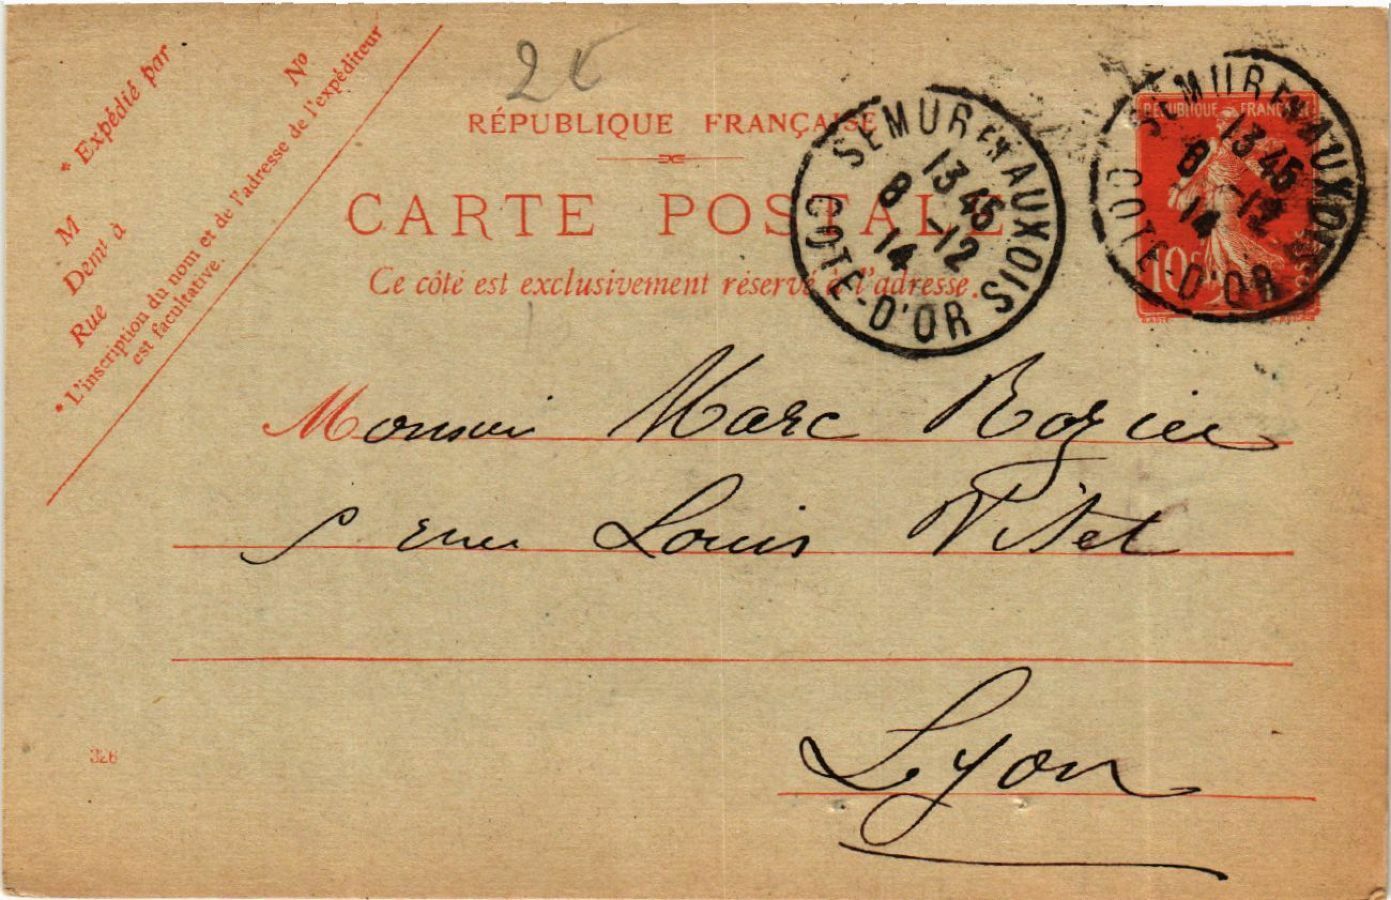 * Expédié par
M
Demt à
Rue
No
* L'inscription du nom et de l'adresse de l'expéditeur
est facultative.
RÉPUBLIQUE FRANÇAISE
CARTE POSTALE
Ce côté est exclusivement réservé à l'adresse.
SEMUR EN AUXOIS
13 45
8 -12
14
CÔTE-D'OR
SEMUR EN AUXOIS
13 45
8 -12
14
CÔTE-D'OR
REPUBLIQUE FRANÇAISE
10c
Monsieur Marc Rozier
rue Louis Vitet
Lyon
326